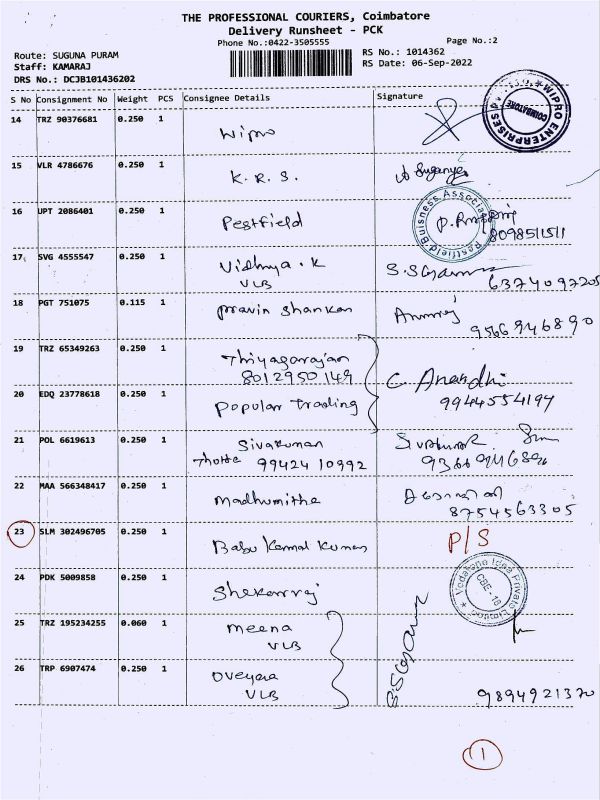 THE PROFESSIONAL COURIERS, Coimbatore
Delivery Runsheet - PCK
Phone No.:0422-3505555
Page No.:2
Route: SUGUNA PURAM
RS No.: 1014362
Staff: KAMARAJ
RS Date: 06-Sep-2022
DRS No.: DCJB101436202
S No Consignment No Weight PCS Consignee Details Signature
14 TRZ 90376681 0.250 1
Wipro
WIPRO ENTERPRISES
COIMBATORE
15 VLR 4786676 0.250 1
K.R.S.
A Suganya
16 UPT 2086401 0.250 1
Pestfield
Pestfield Buisness Associa
8098511511
17 SVG 4555547 0.250 1
Vidhya.K
VLB
6374097205
18 PGT 751075 0.115 1
Pravin Shankar
9566946890
19 TRZ 65349263 0.250 1
Thiyagarajan
8012950149
C Anandhi
9944554194
20 EDQ 23778618 0.250 1
Popular Trading
21 POL 6619613 0.250 1
Sivakumar
99424 10992
22 MAA 566348417 0.250 1
Madhumitha
8754563305
23 SLM 302496705 0.250 1
Babu Kamal Kumar
P/S
24 PDK 5009858 0.250 1
Shekarraj
Vodafone Idea Private Limited
CBE-18
25 TRZ 195234255 0.060 1
Meena
VLB
26 TRP 6907474 0.250 1
Oveyaa
VLB
9894921370
1